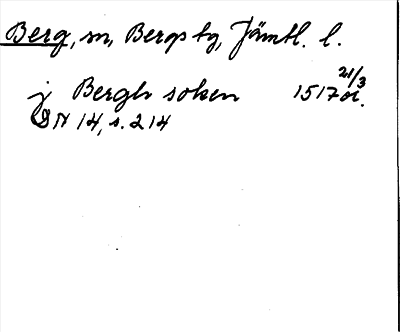 Berg, sn, Bergs tg, Jämtl. l.
j Bergh soken 1517 21/3 or.
DN 14, s. 214